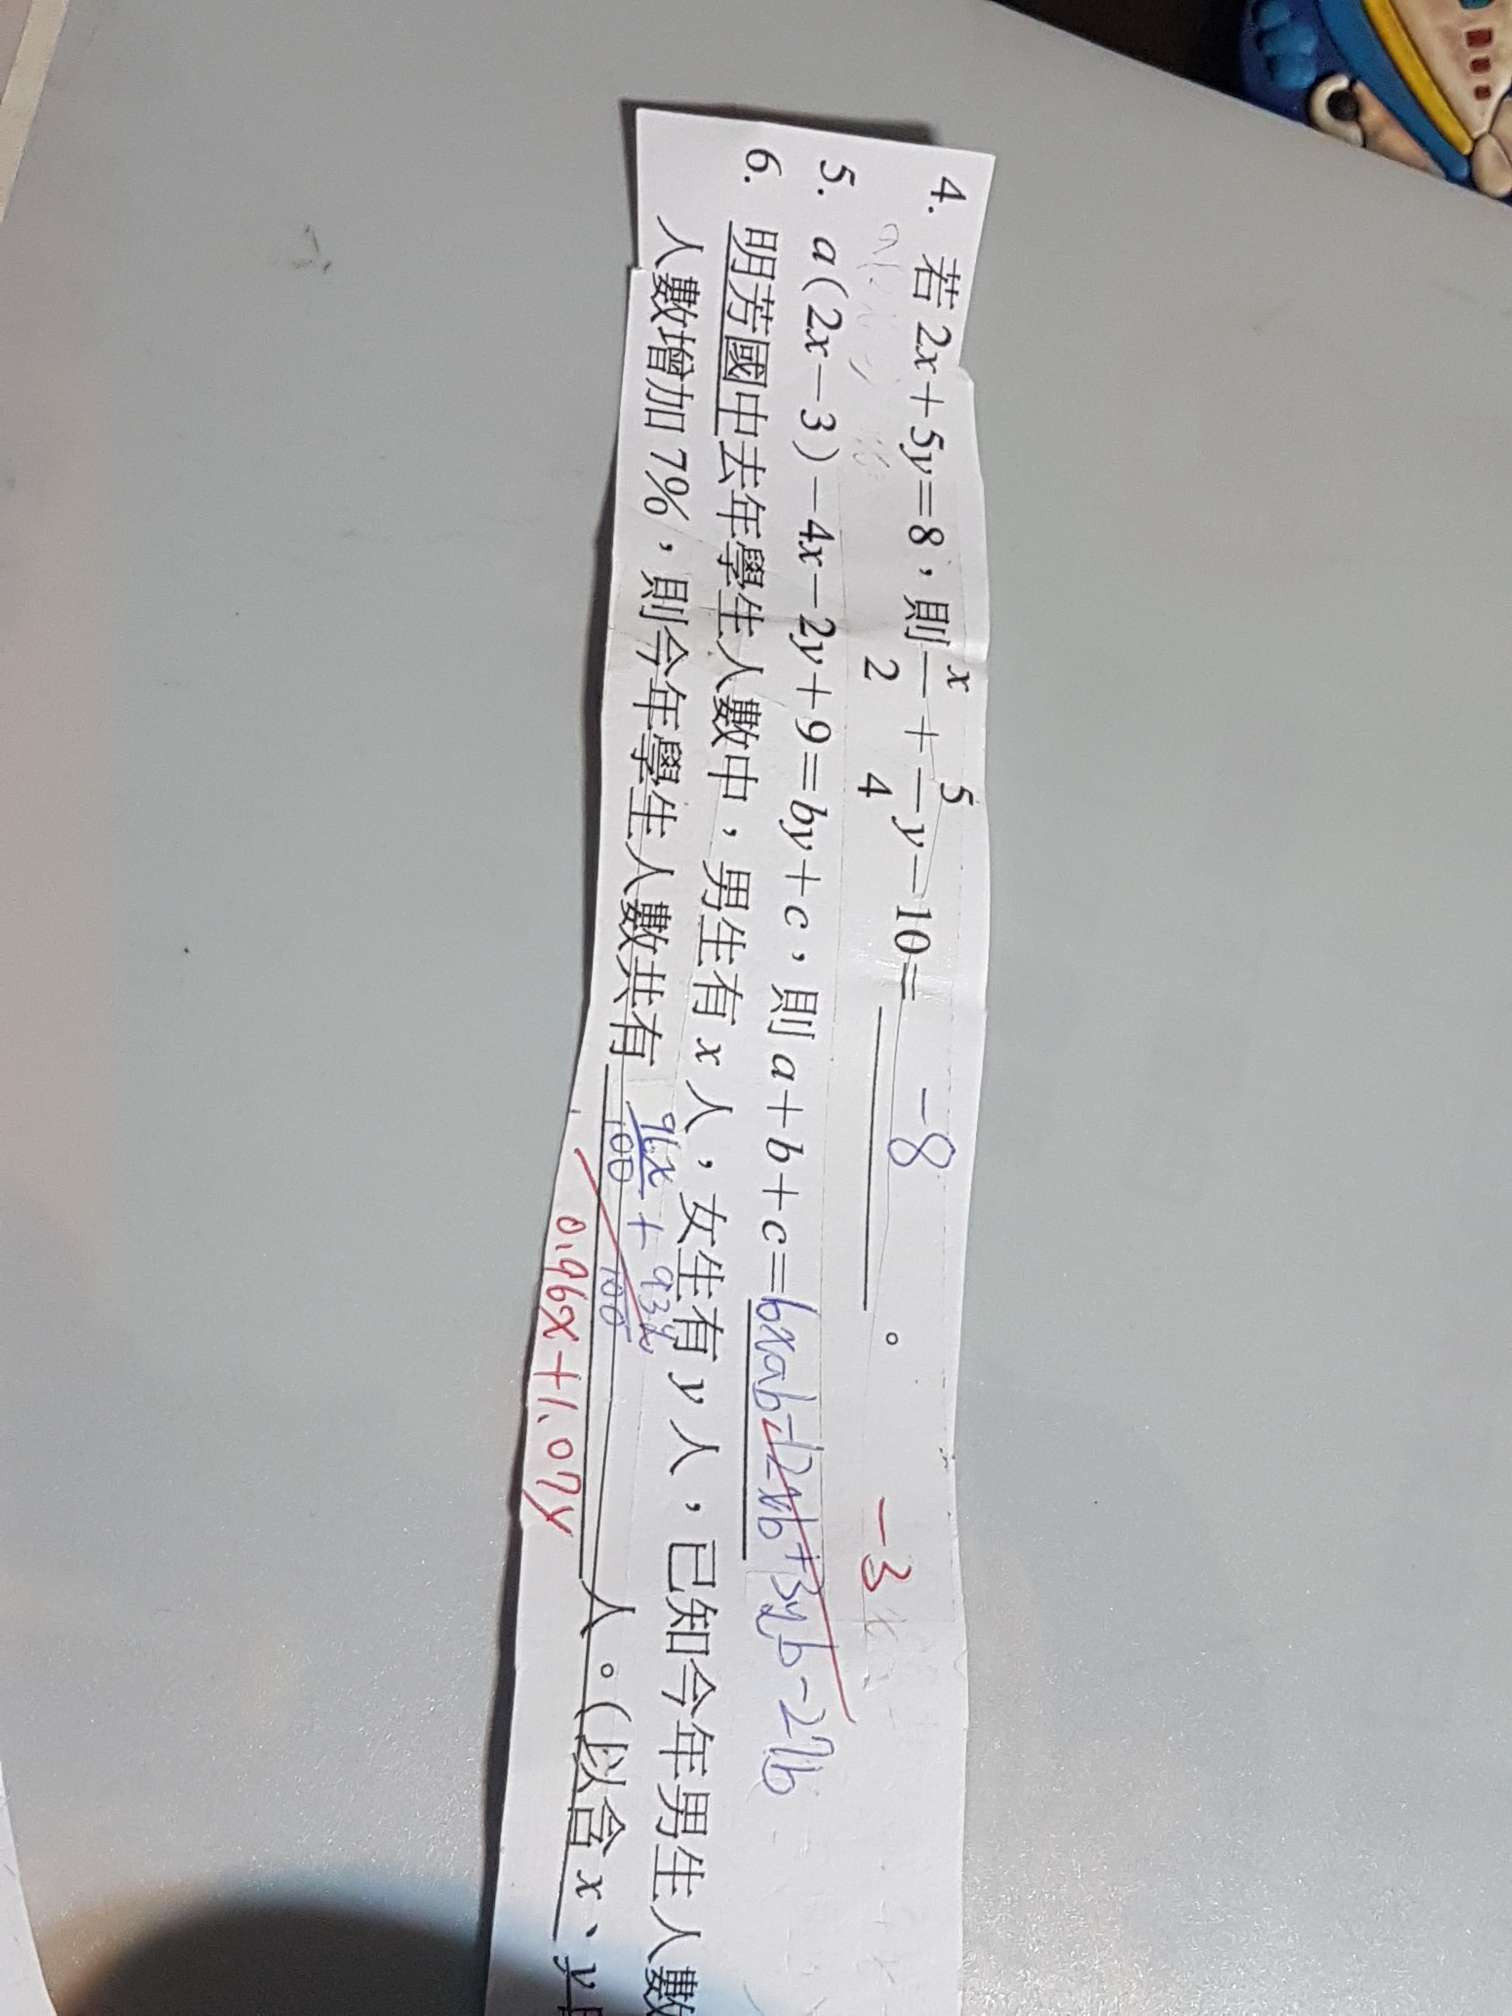 4. 若 2x+5y=8，則 x/2 + 5/4 y-10= -8 。
-3
5. a(2x-3)-4x-2y+9=by+c，則 a+b+c= 6xab-12xb+3yb-27b
6. 明芳國中去年學生人數中，男生有 x 人，女生有 y 人，已知今年男生人數
人數增加 7%，則今年學生人數共有 96x/100 + 93y/100 人。(以含 x、y
0.96x+1.07y